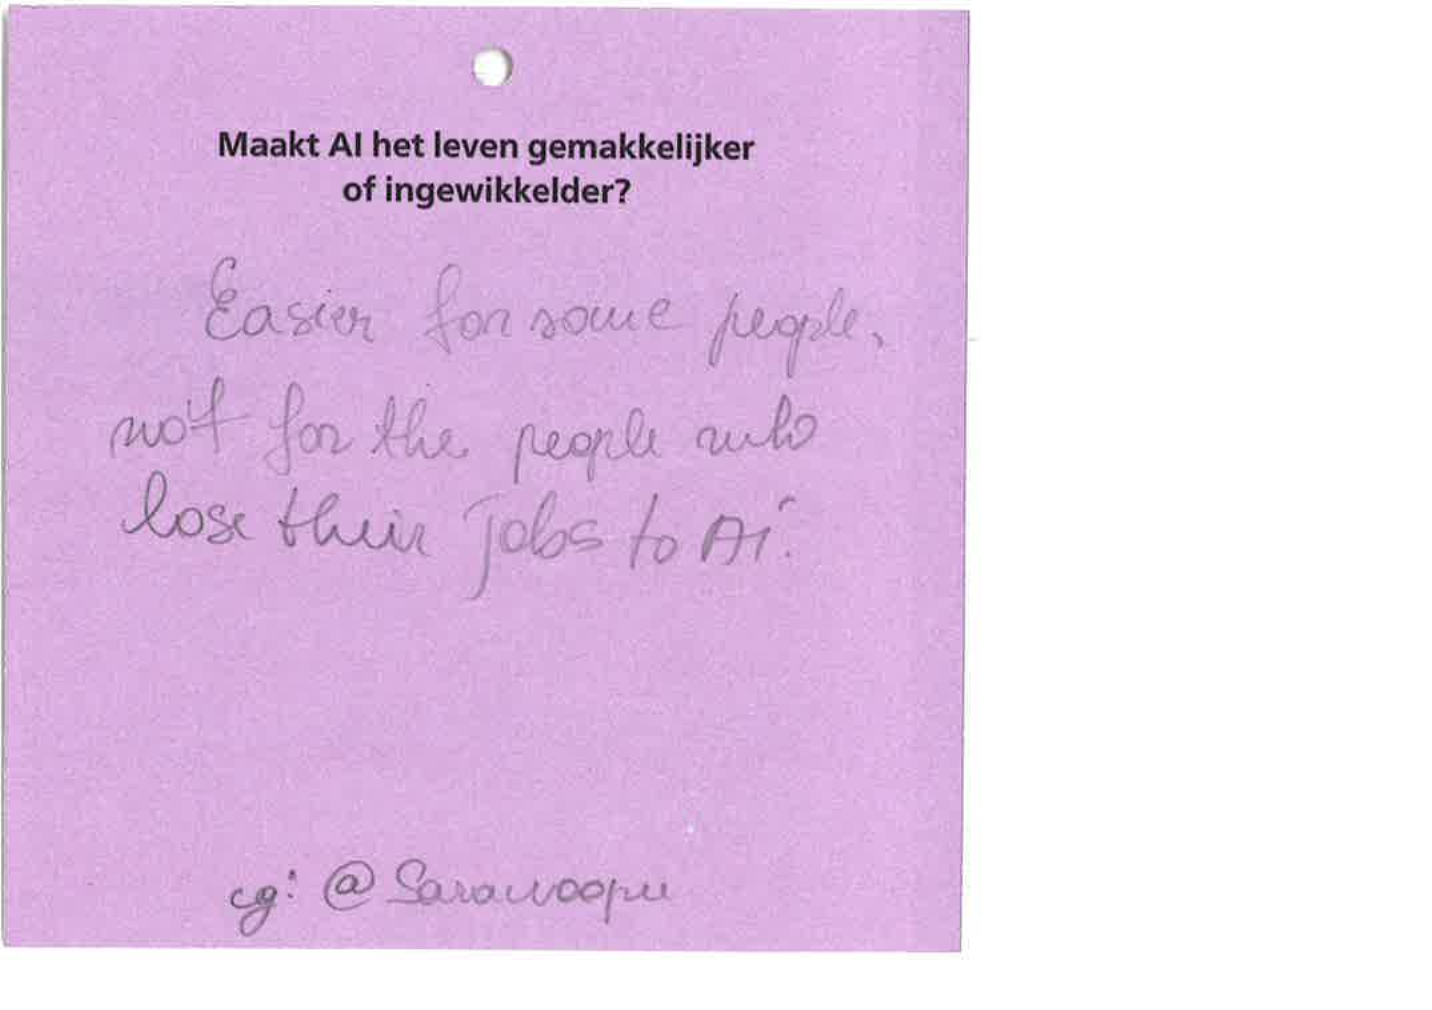 Maakt AI het leven gemakkelijker
of ingewikkelder?
Easier for some people,
not for the people who
lose their jobs to Ai.